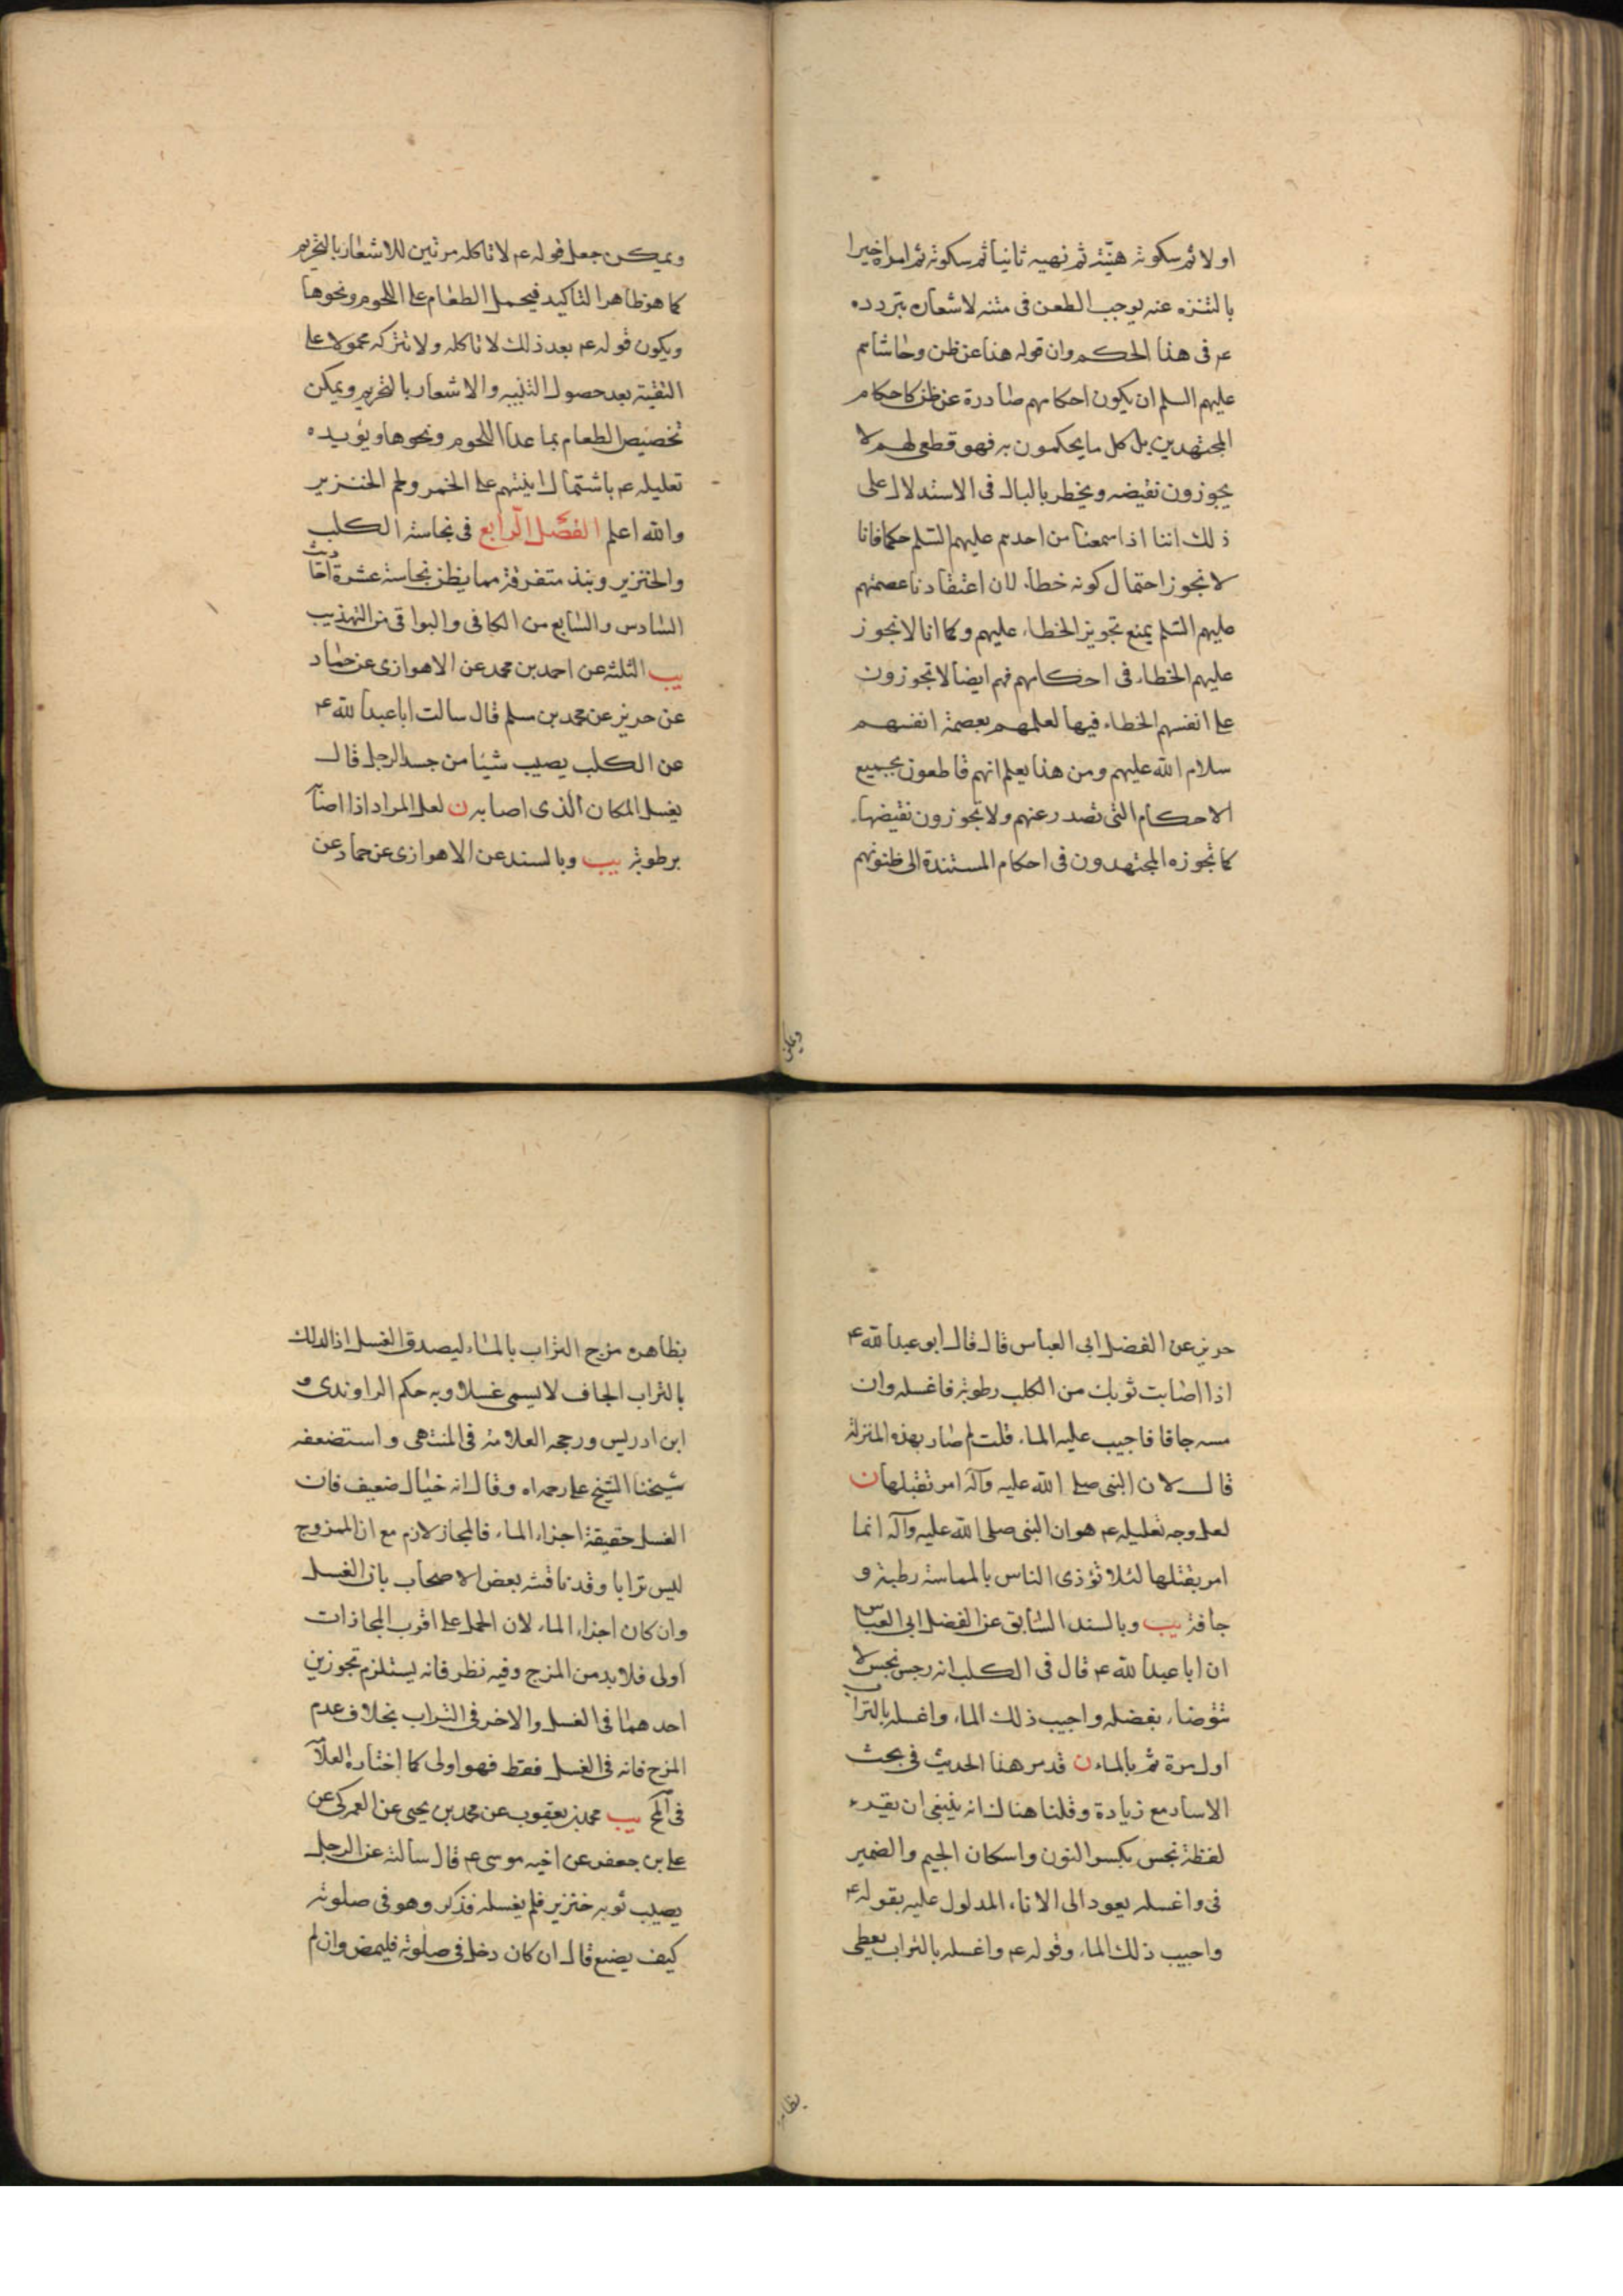 اولا ثم سكوته هنيّئة ثم نهيه ثانيا ثم سكوته ثم امره اخيرا
بالتنزه عنه يوجب الطعن فى متنه لاشعاره بتردده
عم فى هذا الحكم وان قوله هذا عن ظن وحاشاهم
عليهم السلم ان يكون احكامهم صادرة عن ظن كاحكام
المجتهدين بل كل ما يحكمون به فهو قطعى لهم لا
يجوزون نقيضه ويخطر بالبال فى الاستدلال على
ذلك اننا اذا سمعنا من احدهم عليهم السلم حكما فانا
لا نجوز احتمال كونه خطاء لان اعتقادنا عصمتهم
عليهم السلم يمنع تجويز الخطاء عليهم وكما انا لا نجوز
عليهم الخطاء فى احكامهم فهم ايضا لا تجوزون
على انفسهم الخطاء فيها لعلمهم بعصمة انفسهم
سلام الله عليهم ومن هذا يعلم انهم قاطعون بجميع
الاحكام التى تصدر عنهم ولا تجوزون نقيضها
كما تجوزه المجتهدون فى احكام المستندة الى ظنونهم
ويمكن جعل قوله عم لا تاكله مرتين للاشعار بالتحريم
كما هو ظاهر التاكيد فيحمل الطعام على اللحوم ونحوها
ويكون قوله عم بعد ذلك لا تاكله ولا تتركه محمولا على
التقية بعد حصول التنبيه والاشعار بالتحريم ويمكن
تخصيص الطعام بما عدا اللحوم ونحوها ويؤيده
تعليله عم باشتمال انيتهم على الخمر ولحم الخنزير
والله اعلم الفصل الرابع فى نجاسة الكلب
والخنزير ونبذ متفرقة مما يظن نجاسته عشرة احاديث
السادس والسابع من الكافى والبواقى من التهذيب
يب الثلثة عن احمد بن محمد عن الاهوازى عن حماد
عن حريز عن محمد بن مسلم قال سالت ابا عبدالله ع
عن الكلب يصيب شيئا من جسد الرجل قال
يغسل المكان الذى اصابه ن لعل المراد اذا اصابه
برطوبة يب وبالسند عن الاهوازى عن حماد عن
حريز عن الفضل ابى العباس قال قال ابو عبدالله ع
اذا اصابت ثوبك من الكلب رطوبة فاغسله وان
مسه جافا فاجيب عليه الماء قلت لم صار بهذه المنزلة
قال لان النبى صلى الله عليه وآله امر بقتلها ن
لعل وجه تعليله عم هو ان النبى صلى الله عليه وآله انما
امر بقتلها لئلا تؤذى الناس بالمماسة رطبة و
جافة يب وبالسند السابق عن الفضل ابى العباس
ان ابا عبدالله ع قال فى الكلب انه رجس نجس لا
تتوضاء بفضله واجيب ذلك الماء واغسله بالتراب
اول مرة ثم بالماء ن قد مر هذا الحديث فى بحث
الاسار مع زيادة وقلنا هناك انه ينبغى ان يقرء
لفظة نجس بكسر النون واسكان الجيم والضمير
فى واغسله يعود الى الاناء المدلول عليه بقوله ع
واجيب ذلك الماء وقوله عم واغسله بالتراب يعطى
بظاهره مزج التراب بالماء ليصدق الغسل اذ الدلك
بالتراب الجاف لا يسمى غسلا وبه حكم الراوندى و
ابن ادريس ورجحه العلامة فى المنتهى واستضعفه
شيخنا الشيخ على رحمه اه وقال انه خيال ضعيف فان
الغسل حقيقة اجزاء الماء فالمجاز لازم مع ان الممزوج
ليس ترابا وقد ناقشه بعض الاصحاب بان الغسل
وان كان اجزاء الماء لان الحمل على اقرب المجازات
اولى فلا بد من المزج وفيه نظر فانه يستلزم تجوزين
احدهما فى الغسل والاخر فى التراب بخلاف عدم
المزج فانه فى الغسل فقط فهو اولى كما اختاره العلامة
فى يب محمد بن يعقوب عن محمد بن يحيى عن العمركى عن
على بن جعفر عن اخيه موسى عم قال سالته عن الرجل
يصيب ثوبه خنزير فلم يغسله فذكر وهو فى صلوته
كيف يصنع قال ان كان دخل فى صلوته فليمض وان لم